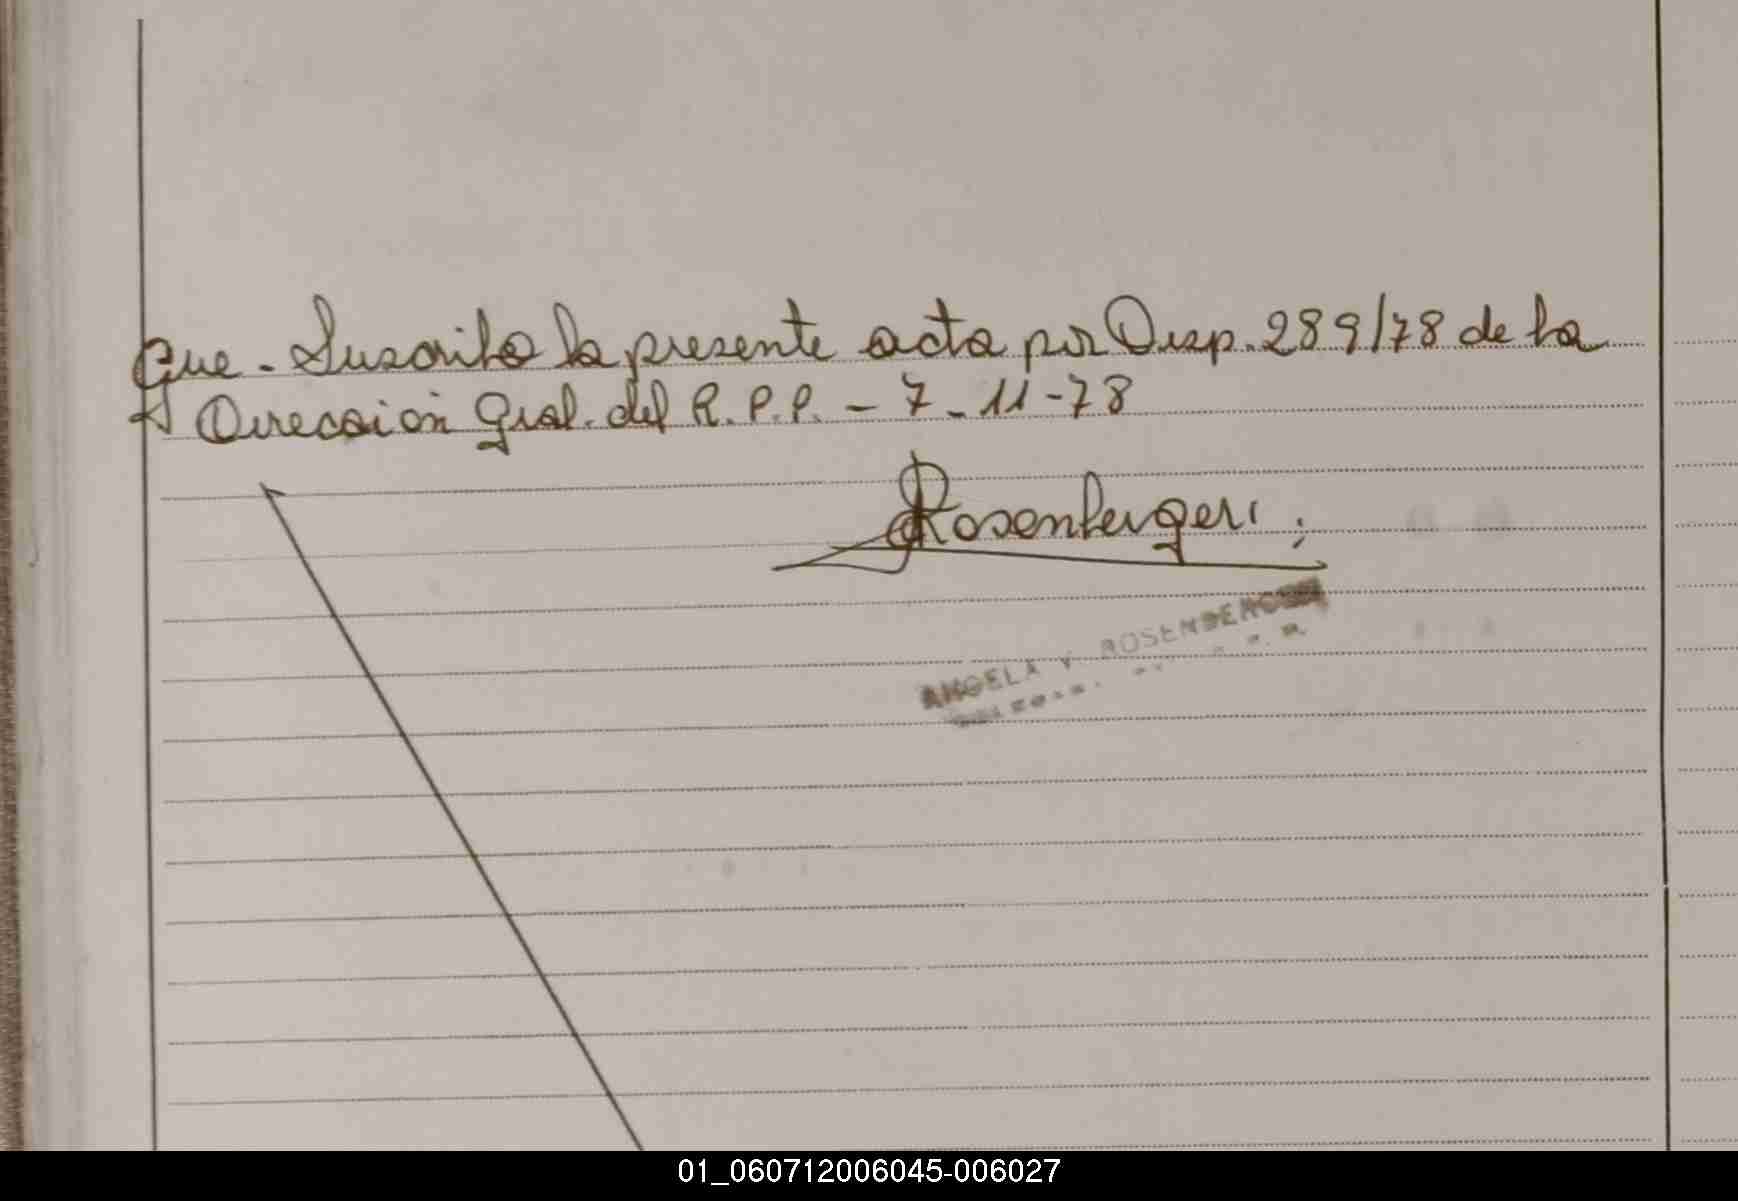 que - Suscrita la presente acta por Disp. 289/78 de la
Dirección Gral. del R.P.P. - 7-11-78
Rosenberger
ANGELA V. ROSENBERGER
01_060712006045-006027